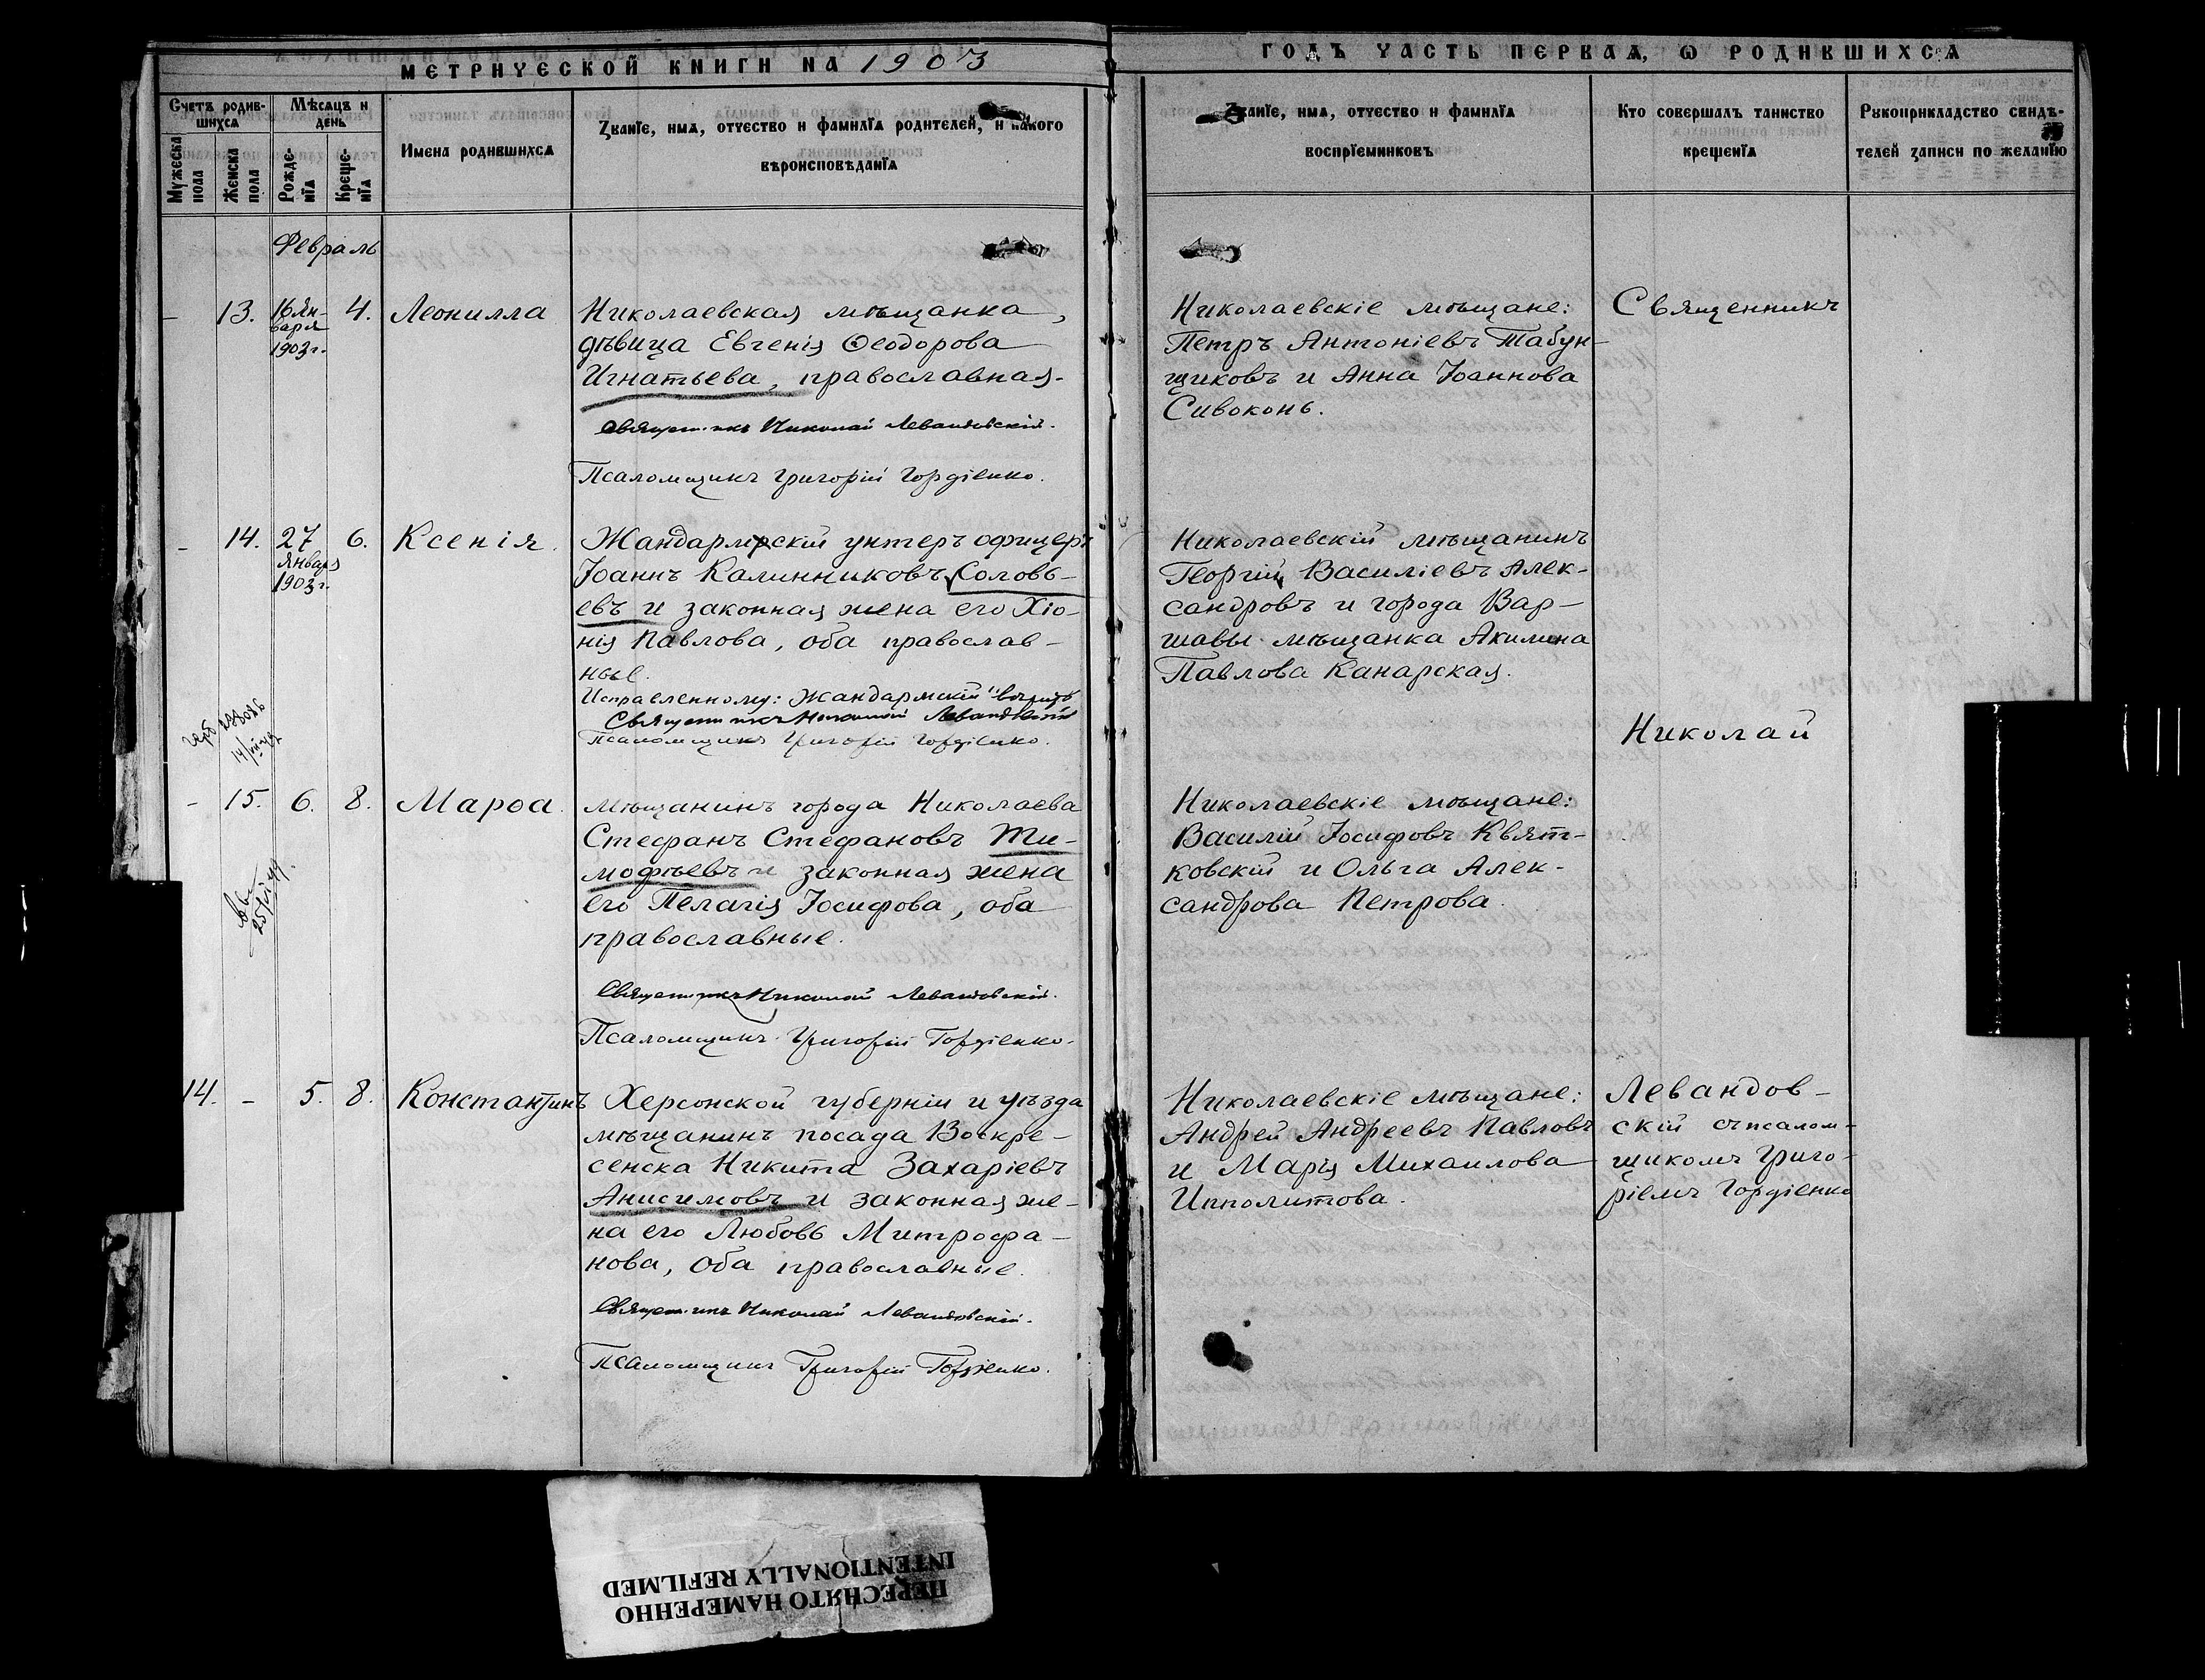 МЕТРИЧЕСКОЙ КНИГИ НА 1903
ГОДЪ ЧАСТЬ ПЕРВАЯ, Ѡ РОДИВШИХСЯ
Счетъ родив-
шихся
Мѣсяцъ и
день
Мужеска
пола
Женска
пола
Рожде-
нїя
Креще-
нїя
Имена родившихся
Званїе, имя, отчество и фамилїя родителей, и какого
вѣроисповѣданїя
Званїе, имя, отчество и фамилїя
воспрїемниковъ
Кто совершалъ таинство
крещенїя
Рукоприкладство свидѣ-
телей записи по желанїю
Февраль
– 13. 16 Ян-
варя
1903 г.
4.
Леонилла
Николаевская мѣщанка,
дѣвица Евгенія Ѳеодорова
Игнатьева, православная.
Священникъ Николай Левандовскій.
Псаломщикъ Григорій Гордіенко.
Николаевскіе мѣщане:
Петръ Антоніевъ Табун-
щиковъ и Анна Іоаннова
Сивоконь.
Священникъ
– 14. 27
Января
1903 г.
6.
Ксенія.
Жандармскій унтеръ офицеръ
Іоаннъ Калинниковъ Соловь-
евъ и законная жена его Хіо-
нія Павлова, оба православ-
ные.
Исправленному: "Жандармскій" вѣрить
Священникъ Николай Левандовскій
Псаломщикъ Григорій Гордіенко.
Николаевскій мѣщанинъ
Георгій Василіевъ Алек-
сандровъ и города Вар-
шавы мѣщанка Акилина
Павлова Канарская.
Николай
– 15. 6. 8.
Марѳа.
Мѣщанинъ города Николаева
Стефанъ Стефановъ Ти-
мофѣевъ и законная жена
его Пелагія Іосифова, оба
православные.
Священникъ Николай Левандовскій.
Псаломщикъ Григорій Гордіенко.
Николаевскіе мѣщане:
Василій Іосифовъ Квят-
ковскій и Ольга Алек-
сандрова Петрова.
14. – 5. 8.
Константинъ
Херсонской губерніи и уѣзда
мѣщанинъ посада Воскре-
сенска Никита Захаріевъ
Анисимовъ и законная же-
на его Любовь Митрофа-
нова, оба православные.
Священникъ Николай Левандовскій.
Псаломщикъ Григорій Гордіенко.
Николаевскіе мѣщане:
Андрей Андреевъ Павловъ
и Марія Михаилова
Ипполитова.
Левандов-
скій съ псалом-
щикомъ Григо-
ріемъ Гордіенко
ПЕРЕСНЯТО НАМЕРЕННО
INTENTIONALLY REFILMED